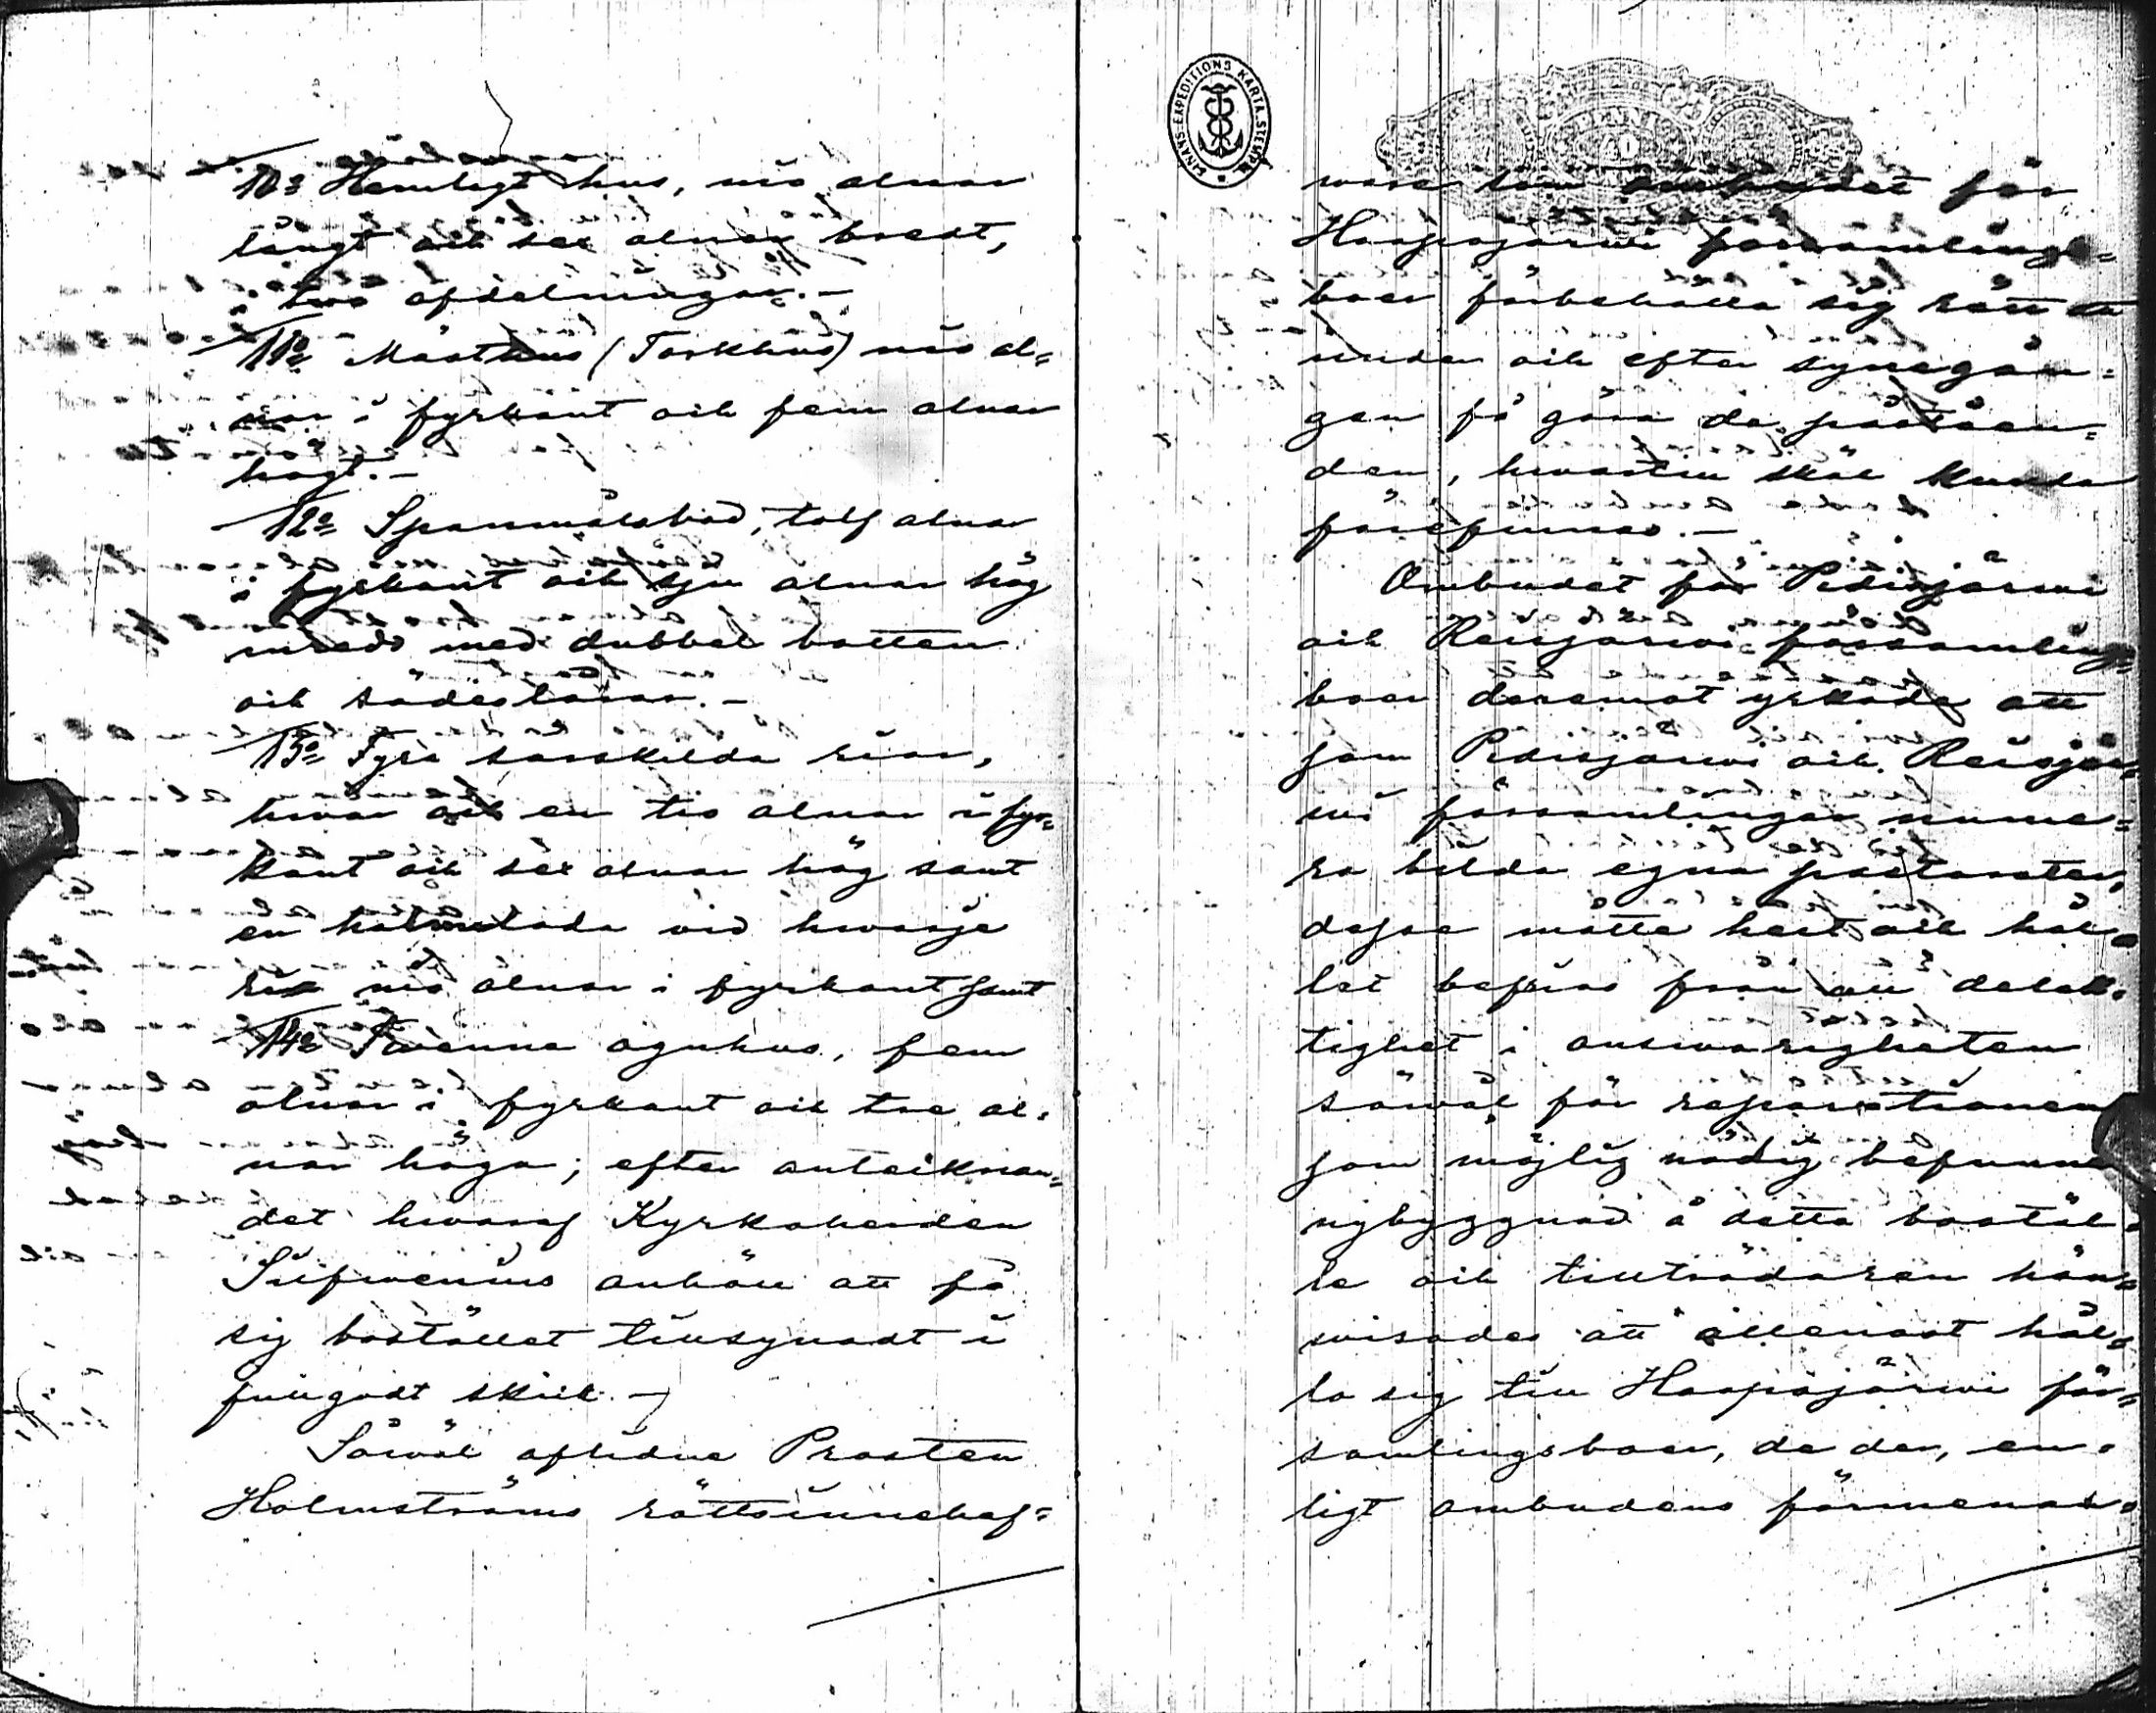 10:o Hemligt hus, nio alnar
långt och sex alnar bredt,
i två afdelningar.-
11:o Mälthus (Torkhus) nio al=
nar i fyrkant och fem alnar
högt.-
12:o Spannmålsbod, tolf alnar
i fyrkant och sju alnar hög
inredd med dubbel botten
och sädeslårar.-
13:o Fyra särskilda riar,
hvar och en tio alnar i fyr=
kant och sex alnar hög samt
en halmlada vid hvarje
ria nio alnar i fyrkant samt
14:o Tvenne agnhus, fem
alnar i fyrkant och tre al=
nar höga; efter antecknan=
det hvaraf Kyrkoherden
anhöll att få
sig bostället tillsynadt i
fullgodt skick.-
Såväl aflidne Prosten
Holmströms rättsinnehaf=
vare som ombudet för
Haapajärwi församlings=
boer förbehålla sig rätt att
under och efter synegån=
gen få göra de påståen=
den, hvartill skäl kunde
förefinnas.-
Ombudet för Pidisjärwi
och Reisjärwi församlings
boer deremot yrkade att
som Pidisjärwi och Reisjär=
wi församlingar nume=
ra bilda egna pastorater,
dessa måtte helt och hål=
let befrias från all delak=
tighet i answarigheten
såväl för reparationen
som möjlig nödig befunnen
nybyggnad å detta boställ=
le och tillträdaren hän=
wisades att allenast hål=
la sig till Haapajärwi för=
samlingsboer, de der, en=
ligt ombudens förmenan=
FINANS-EXPEDITIONS KARTA STEMPEL